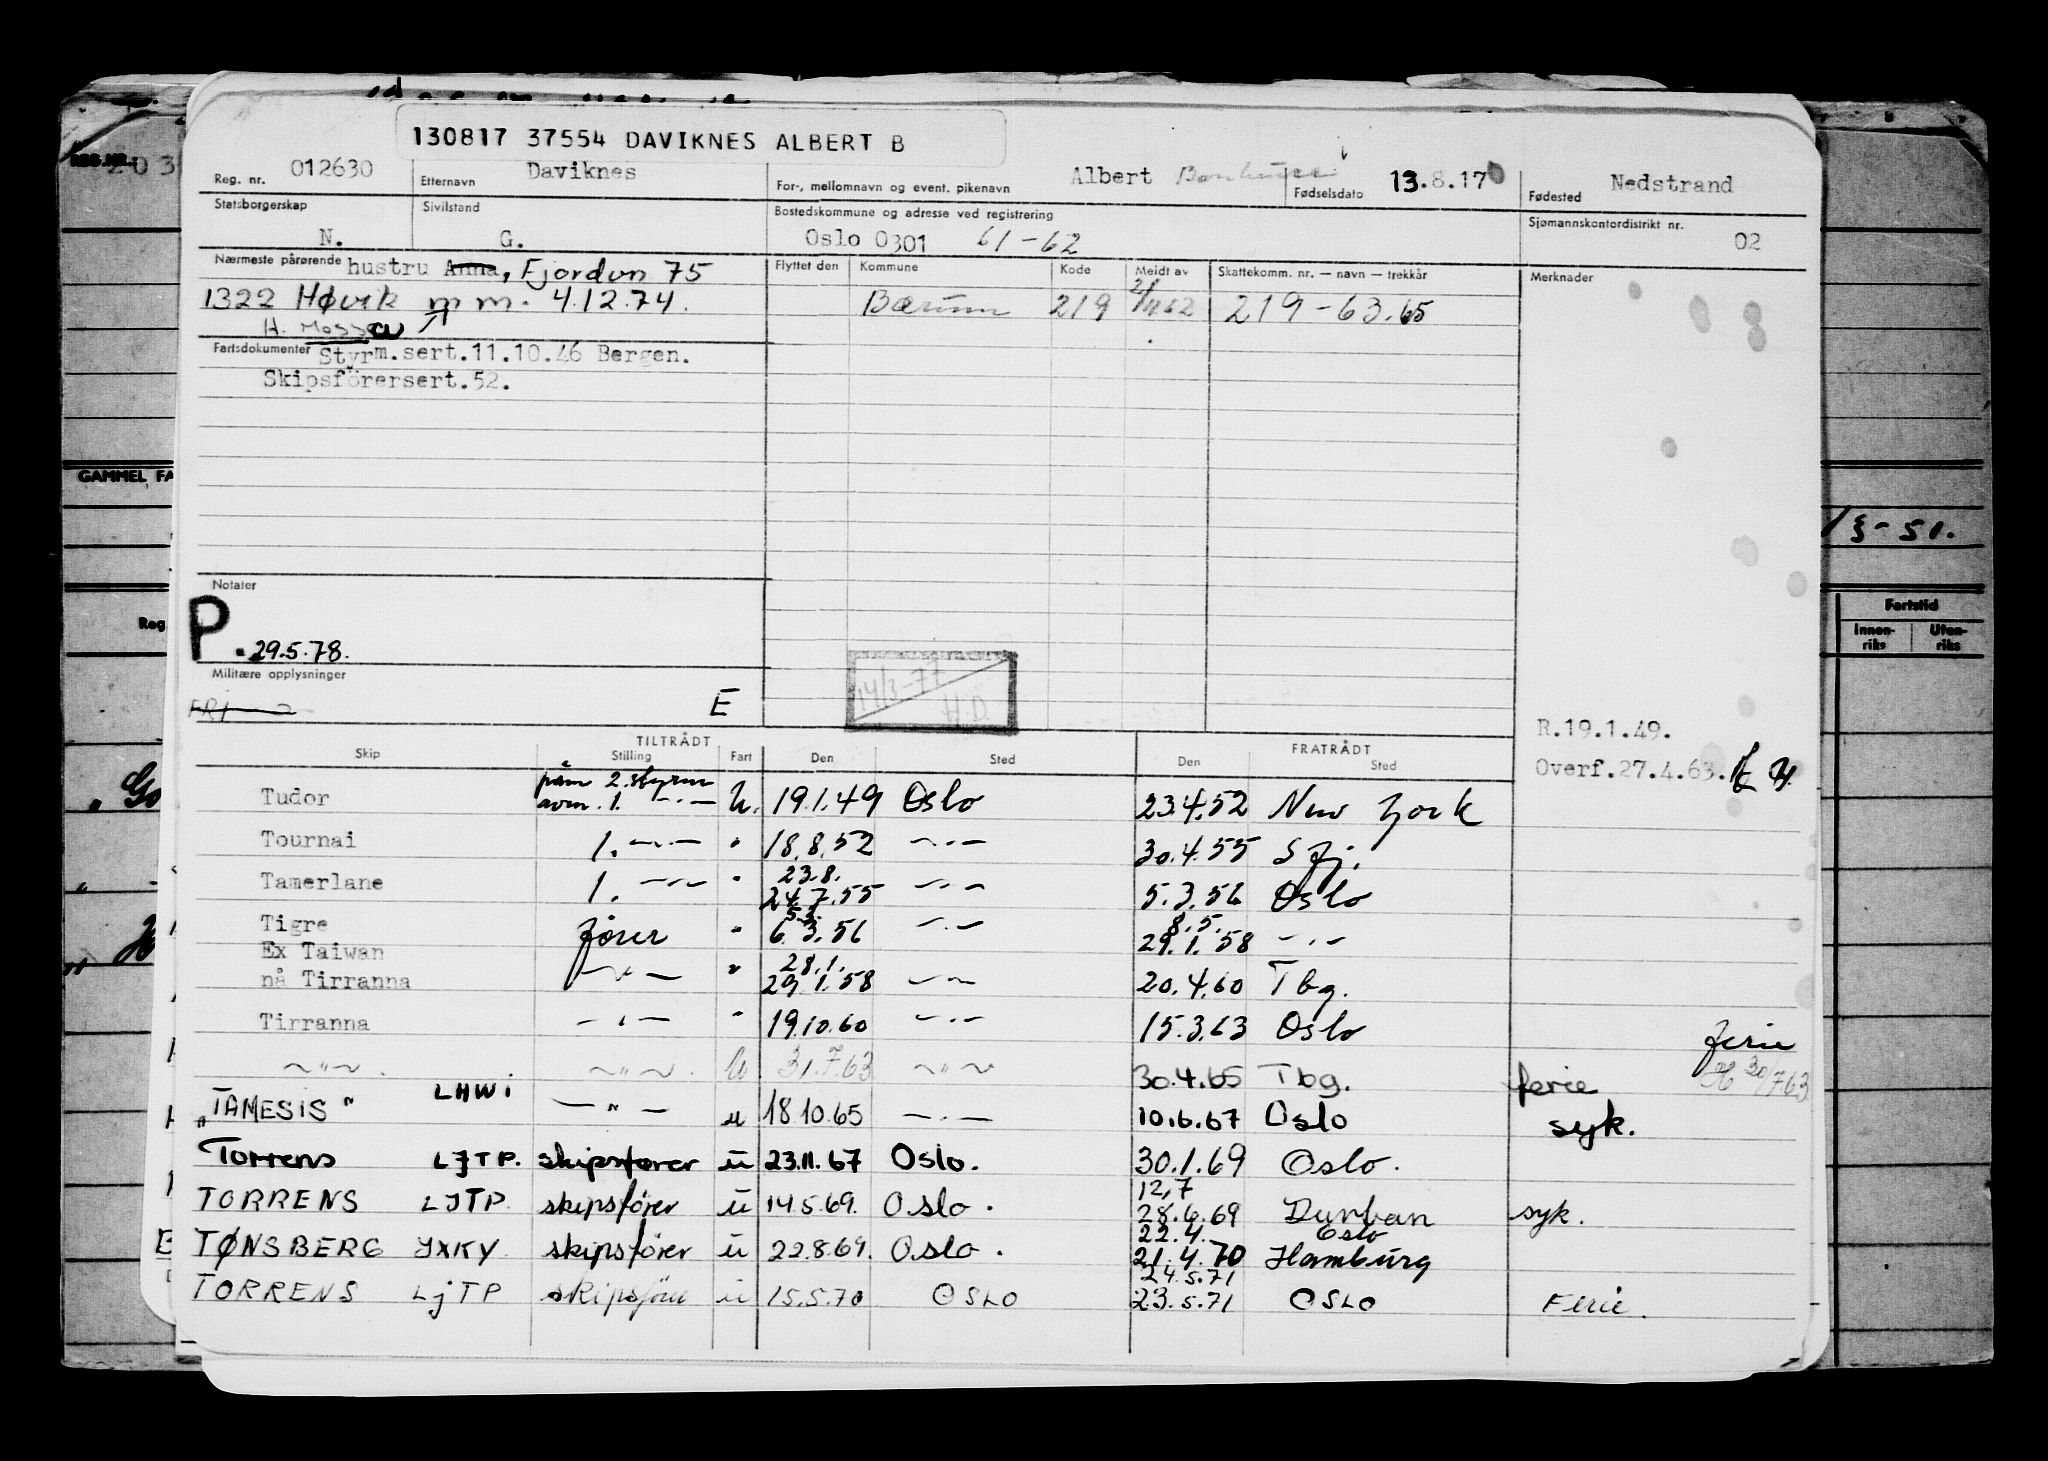 130817 37554 DAVIKNES ALBERT B
REG.NR. 203
Reg. nr. 012630 Etternavn Daviknes For-, mellomnavn og event. pikenavn Albert Fødselsdato 13.8.17 Fødested Nedstrand
Statsborgerskap N. Sivilstand G. Bostedskommune og adresse ved registrering Oslo 0301 61-62 Sjømannskontordistrikt nr. 02
Nærmeste pårørende hustru Anna, Fjordvn 75 Flyttet den Kommune Kode Meldt av Skattekomm. nr. — navn — trekkår Merknader
1322 Høvik m m. 4.12.74. Bærum 219 2/11 62 219-63.65
H. Mosseau
Fartsdokumenter Styrm.sert.11.10.46 Bergen.
Skipsförersert.52.
GAMMEL FA
/ § - 51.
Notater
P. 29.5.78.
Militære opplysninger
FRI E
14/3-77
H.D.
Reg
Fartstid
Innen-riks Uten-riks
R.19.1.49.
Overf.27.4.63.
TILTRÅDT FRATRÅDT
Skip Stilling Fart Den Sted Den Sted
påm 2. styrm
Tudor avm. 1. -·- U. 19.1.49 Oslo 23.4.52 New York
Tournai 1. -·- " 18.8.52 -·- 30.4.55 S Fj.
23.8.
Tamerlane 1. -·- " 24.7.55 -·- 5.3.56 Oslo
5.3. 8.5.
Tigre fører " 6.3.56 -·- 29.1.58 -·-
Ex Taiwan 28.1.
nå Tirranna -·- " 29.1.58 -·- 20.4.60 Tbg.
Tirranna -·- " 19.10.60 -·- 15.3.63 Oslo ferie
-"- -"- U 31.7.63 -"- 30.4.65 Tbg. ferie 30/7 63
"TAMESIS" LHWI -"- u 18.10.65 -·- 10.6.67 Oslo syk.
Torrens LJTP. skipsfører u 23.11.67 Oslo. 30.1.69 Oslo.
12,7
TORRENS LJTP. skipsfører u 14.5.69. Oslo. 28.6.69 Durban syk.
22.4. Oslo
TØNSBERG JXKY. skipsfører u 22.8.69. Oslo. 21.4.70 Hamburg
24.5.71
TORRENS LjTP skipsføre u 15.5.70 OSLO 23.5.71 OSLO Ferie.